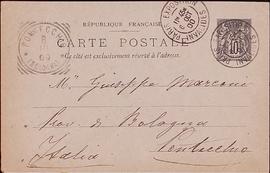 RÉPUBLIQUE FRANÇAISE
CARTE POSTALE
Ce côté est exclusivement réservé à l'adresse.
Mr Giuseppe Marconi
Prov. di Bologna
Pontecchio
Italia